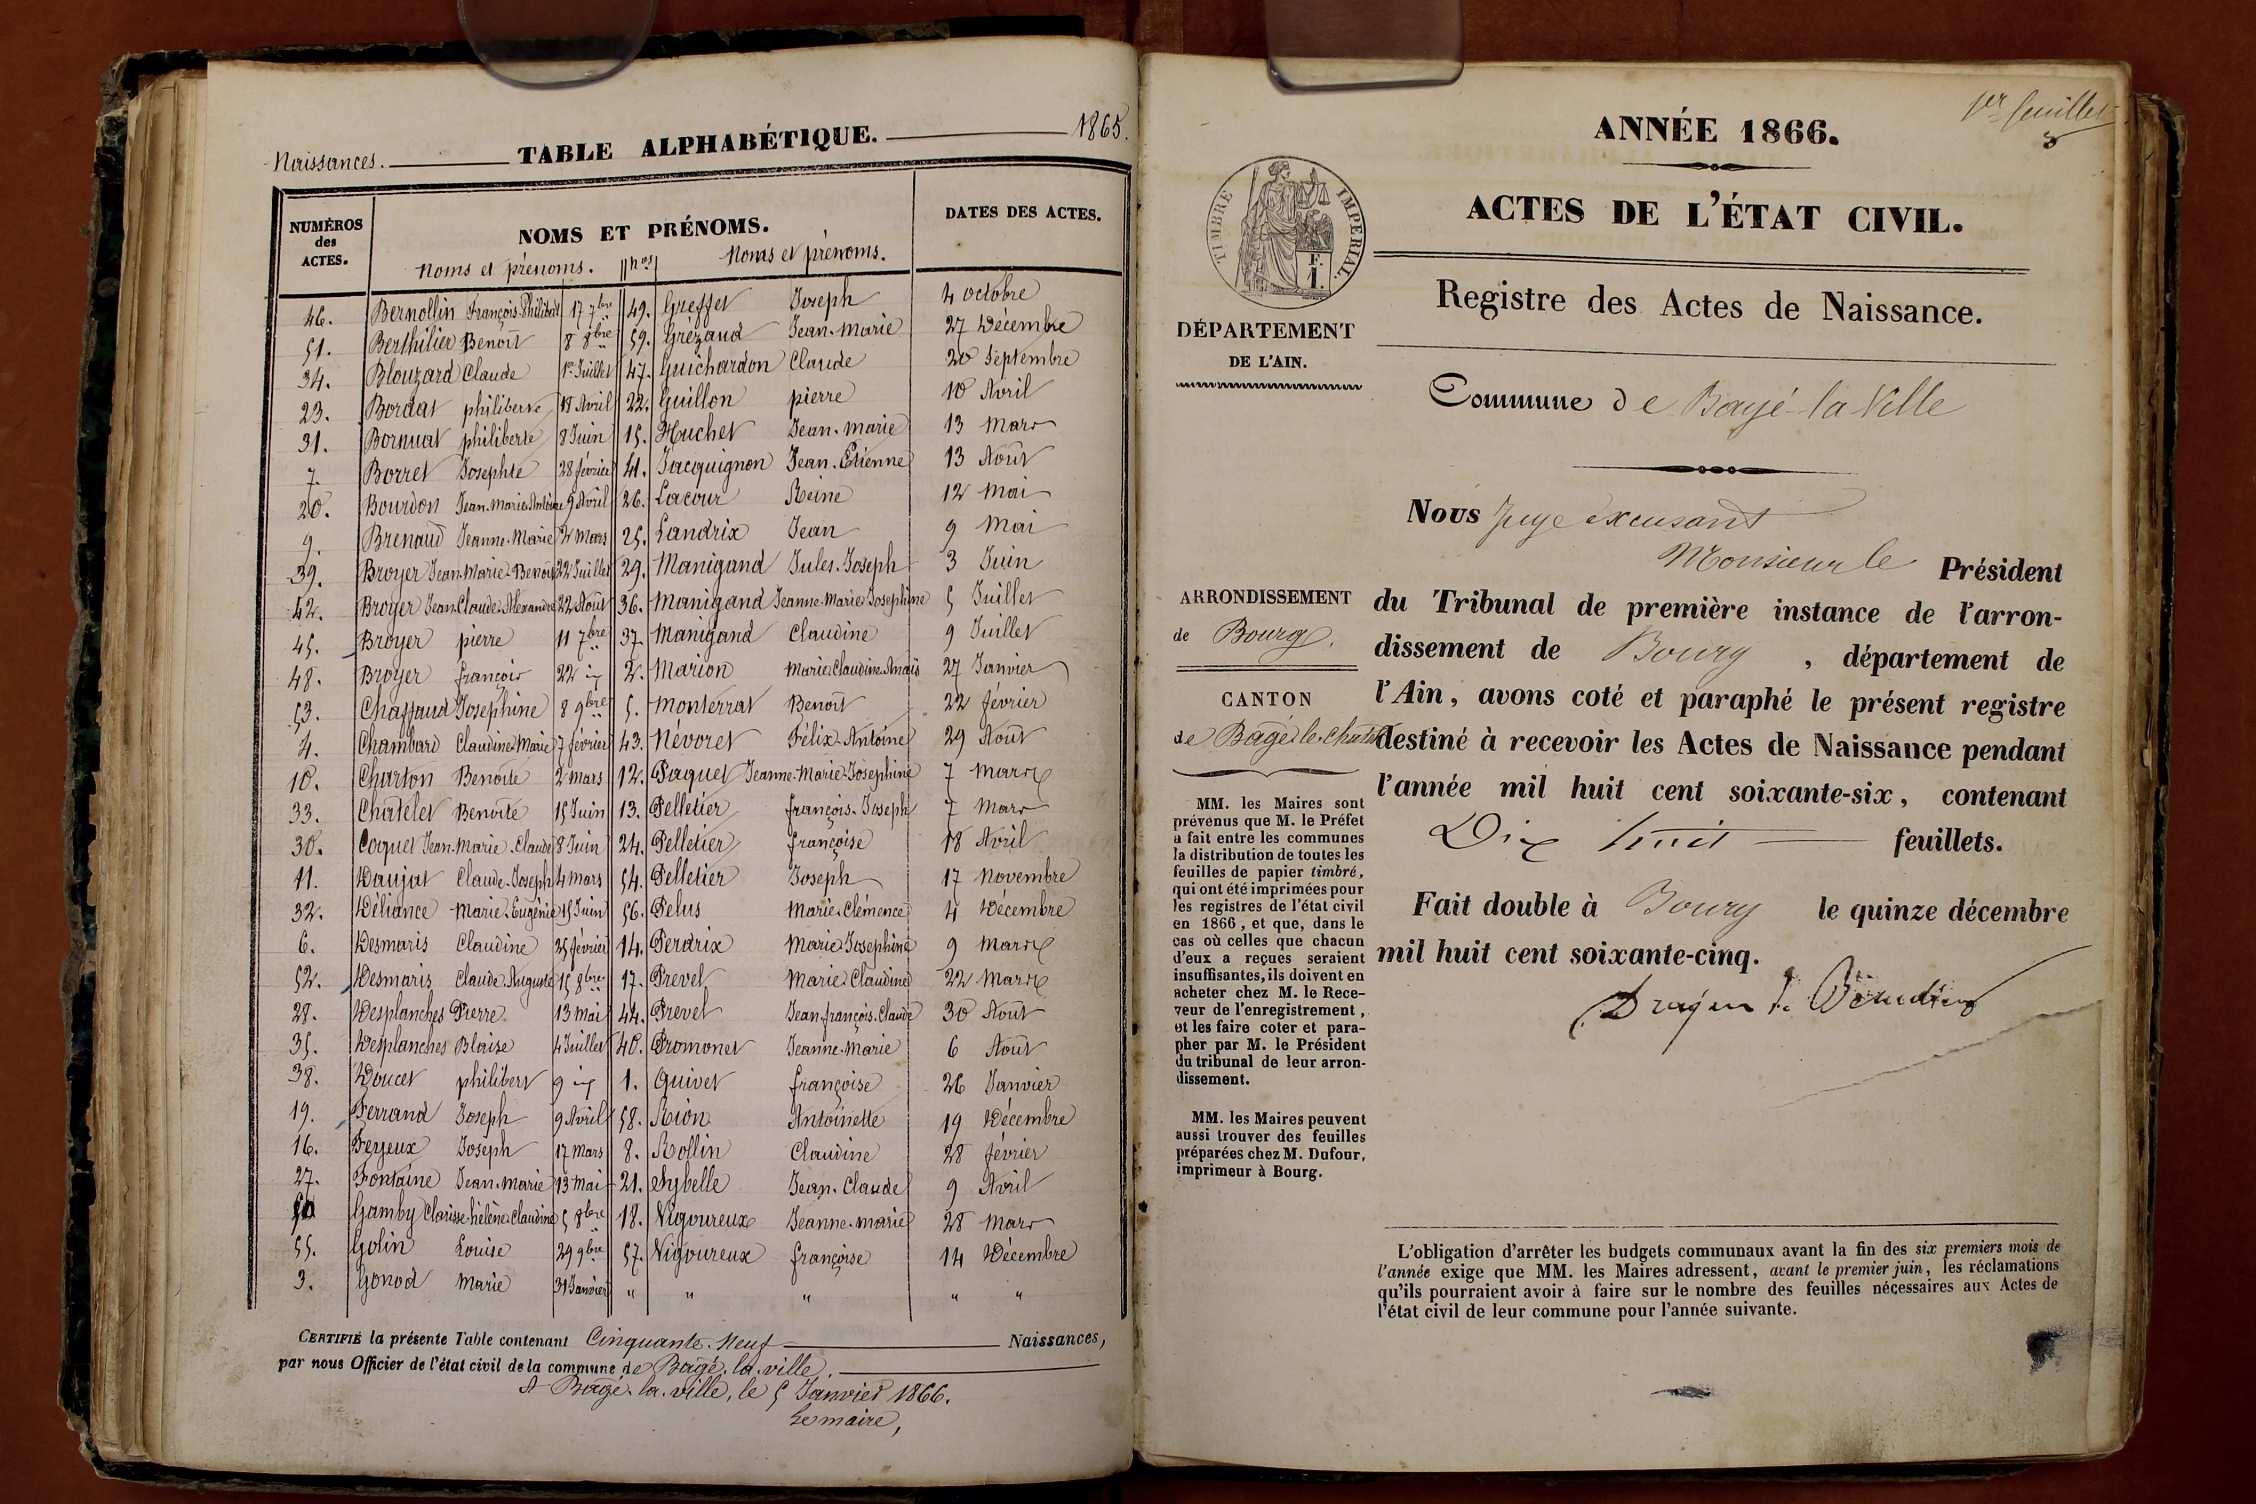 Naissances. TABLE ALPHABÉTIQUE. 1865.
NUMÉROS des ACTES. NOMS ET PRÉNOMS. DATES DES ACTES.
Noms et prénoms. nos Noms et prénoms.
46. Bernollin François-Philibert 17 7bre 49. Greffet Joseph 4 octobre
51. Berthilier Benoît 8 8bre 59. Grézaud Jean-Marie 27 Décembre
34. Blouzard Claude 1er Juillet 47. Guichardon Claude 20 Septembre
23. Bordat philiberte 18 Avril 22. Guillon pierre 10 Avril
31. Bornuat philiberte 8 Juin 15. Huchet Jean-Marie 13 Mars
7. Borret Josephte 28 février 41. Jacquignon Jean-Etienne 13 Août
20. Bourdon Jean-Marie-Antoine 9 Avril 26. Lacour Reine 12 Mai
9. Brenaud Jeanne-Marie 2 Mars 25. Landrix Jean 9 Mai
39. Broyer Jean-Marie-Benoît 22 Juillet 29. Manigand Jules-Joseph 3 Juin
42. Broyer Jean-Claude-Alexandre 22 Août 36. Manigand Jeanne-Marie-Josephine 5 Juillet
45. Broyer pierre 11 7bre 37. Manigand Claudine 9 Juillet
48. Broyer françois 22 id 2. Marion Marie-Claudine-Anaïs 27 Janvier
53. Chaffaud Joséphine 8 9bre 5. Monterrat Benoît 22 février
4. Chambard Claudine-Marie 7 février 43. Névoret Félix-Antoine 29 Août
10. Charton Benoîte 2 mars 12. Paquet Jeanne-Marie-Josephine 7 Mars
33. Châtelet Benoîte 15 Juin 13. Pelletier françois-Joseph 7 Mars
30. Coquet Jean-Marie-Claude 8 Juin 24. Pelletier françoise 18 Avril
11. Daujat Claude-Joseph 4 mars 54. Pelletier Joseph 17 Novembre
32. Déliance Marie-Eugénie 15 Juin 56. Pelus Marie-Clémence 4 Décembre
6. Desmaris Claudine 25 février 14. Perdrix Marie-Josephine 9 Mars
52. Desmaris Claude-Auguste 15 8bre 17. Prevel Marie-Claudine 22 Mars
28. Desplanches Pierre 13 mai 44. Prevel Jean-françois-Claude 30 Août
35. Desplanches Blaise 4 Juillet 40. Promonet Jeanne-Marie 6 Août
38. Doucet philibert 9 id 1. Quivet françoise 26 Janvier
19. Ferrand Joseph 9 Avril 58. Rion Antoinette 19 Décembre
16. Feyeux Joseph 17 Mars 8. Rollin Claudine 28 février
27. Fontaine Jean-Marie 13 Mai 21. Sybelle Jean-Claude 9 Avril
50 Gamby Clarisse-hélène-Claudine 5 8bre 18. Vigoureux Jeanne-Marie 28 Mars
55. Golin Louise 29 9bre 57. Vigoureux françoise 14 Décembre
3. Gonod Marie 31 Janvier " " " " "
CERTIFIÉ la présente Table contenant Cinquante-Neuf Naissances,
par nous Officier de l'état civil de la commune de Bâgé-la-ville.
A Bâgé-la-ville, le 5 Janvier 1866.
Le maire,
1er feuillet
ANNÉE 1866.
TIMBRE IMPÉRIAL.
F. 1.
ACTES DE L'ÉTAT CIVIL.
Registre des Actes de Naissance.
DÉPARTEMENT
DE L'AIN.
Commune de Bagé-la-Ville
Nous Juge excusant
Monsieur le Président
du Tribunal de première instance de l'arron-
dissement de Bourg, département de
l'Ain, avons coté et paraphé le présent registre
destiné à recevoir les Actes de Naissance pendant
l'année mil huit cent soixante-six, contenant
Dix huit feuillets.
Fait double à Bourg le quinze décembre
mil huit cent soixante-cinq.
ARRONDISSEMENT
de Bourg.
CANTON
de Bagé-le-Chatel
MM. les Maires sont
prévenus que M. le Préfet
a fait entre les communes
la distribution de toutes les
feuilles de papier timbré,
qui ont été imprimées pour
les registres de l'état civil
en 1866, et que, dans le
cas où celles que chacun
d'eux a reçues seraient
insuffisantes, ils doivent en
acheter chez M. le Rece-
veur de l'enregistrement,
et les faire coter et para-
pher par M. le Président
du tribunal de leur arron-
dissement.
MM. les Maires peuvent
aussi trouver des feuilles
préparées chez M. Dufour,
imprimeur à Bourg.
L'obligation d'arrêter les budgets communaux avant la fin des six premiers mois de
l'année exige que MM. les Maires adressent, avant le premier juin, les réclamations
qu'ils pourraient avoir à faire sur le nombre des feuilles nécessaires aux Actes de
l'état civil de leur commune pour l'année suivante.